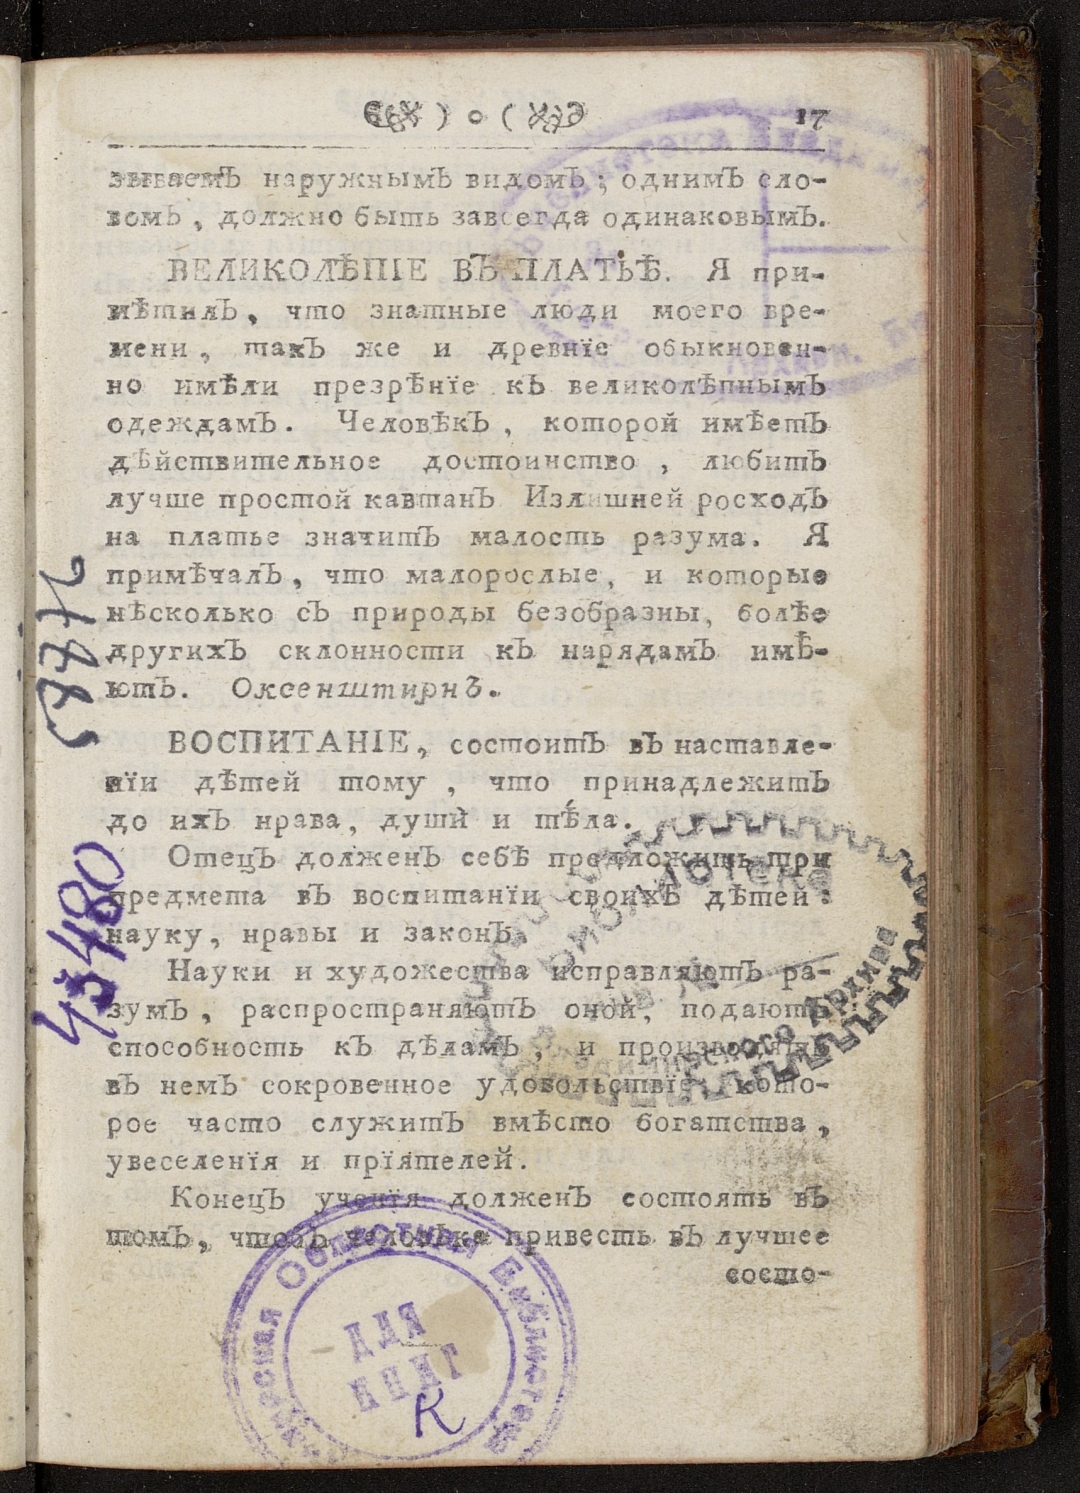 ) o ( 17
зываемЪ наружнымЪ видомЪ; однимЪ сло-
вомЪ, должно быть завсегда одинаковымЪ.
ВЕЛИКОЛѢПІЕ ВЪ ПЛАТЬѢ. Я при-
мѣтилЪ, что знатные люди моего вре-
мени, такЪ же и древнїе обыкновен-
но имѣли презрѣнїе кЪ великолѣпнымЪ
одеждамЪ. ЧеловѣкЪ, которой имѣетЪ
дѣйствительное достоинство, любитЪ
лучше простой кавтанЪ Излишней росходЪ
на платье значитЪ малость разума. Я
примѣчалЪ, что малорослые, и которые
нѣсколько сЪ природы безобразны, болѣе
другихЪ склонности кЪ нарядамЪ имѣ-
ютЪ. ОксенштирнЪ.
ВОСПИТАНІЕ, состоитЪ вЪ наставле-
нїи дѣтей тому, что принадлежитЪ
до ихЪ нрава, души и тѣла.
ОтецЪ долженЪ себѣ предложить три
предмета вЪ воспитанїи своихЪ дѣтей:
науку, нравы и законЪ.
Науки и художества исправляютЪ ра-
зумЪ, распространяютЪ оной, подаютЪ
способность кЪ дѣламЪ, и производятЪ
вЪ немЪ сокровенное удовольствїе кото-
рое часто служитЪ вмѣсто богатства,
увеселенїя и прїятелей.
КонецЪ ученїя долженЪ состоять вЪ
томЪ, чтобЪ человѣка привесть вЪ лучшее
состо-
43480
Областная Библиотека
ДЛЯ
КНИГ
К
Архива